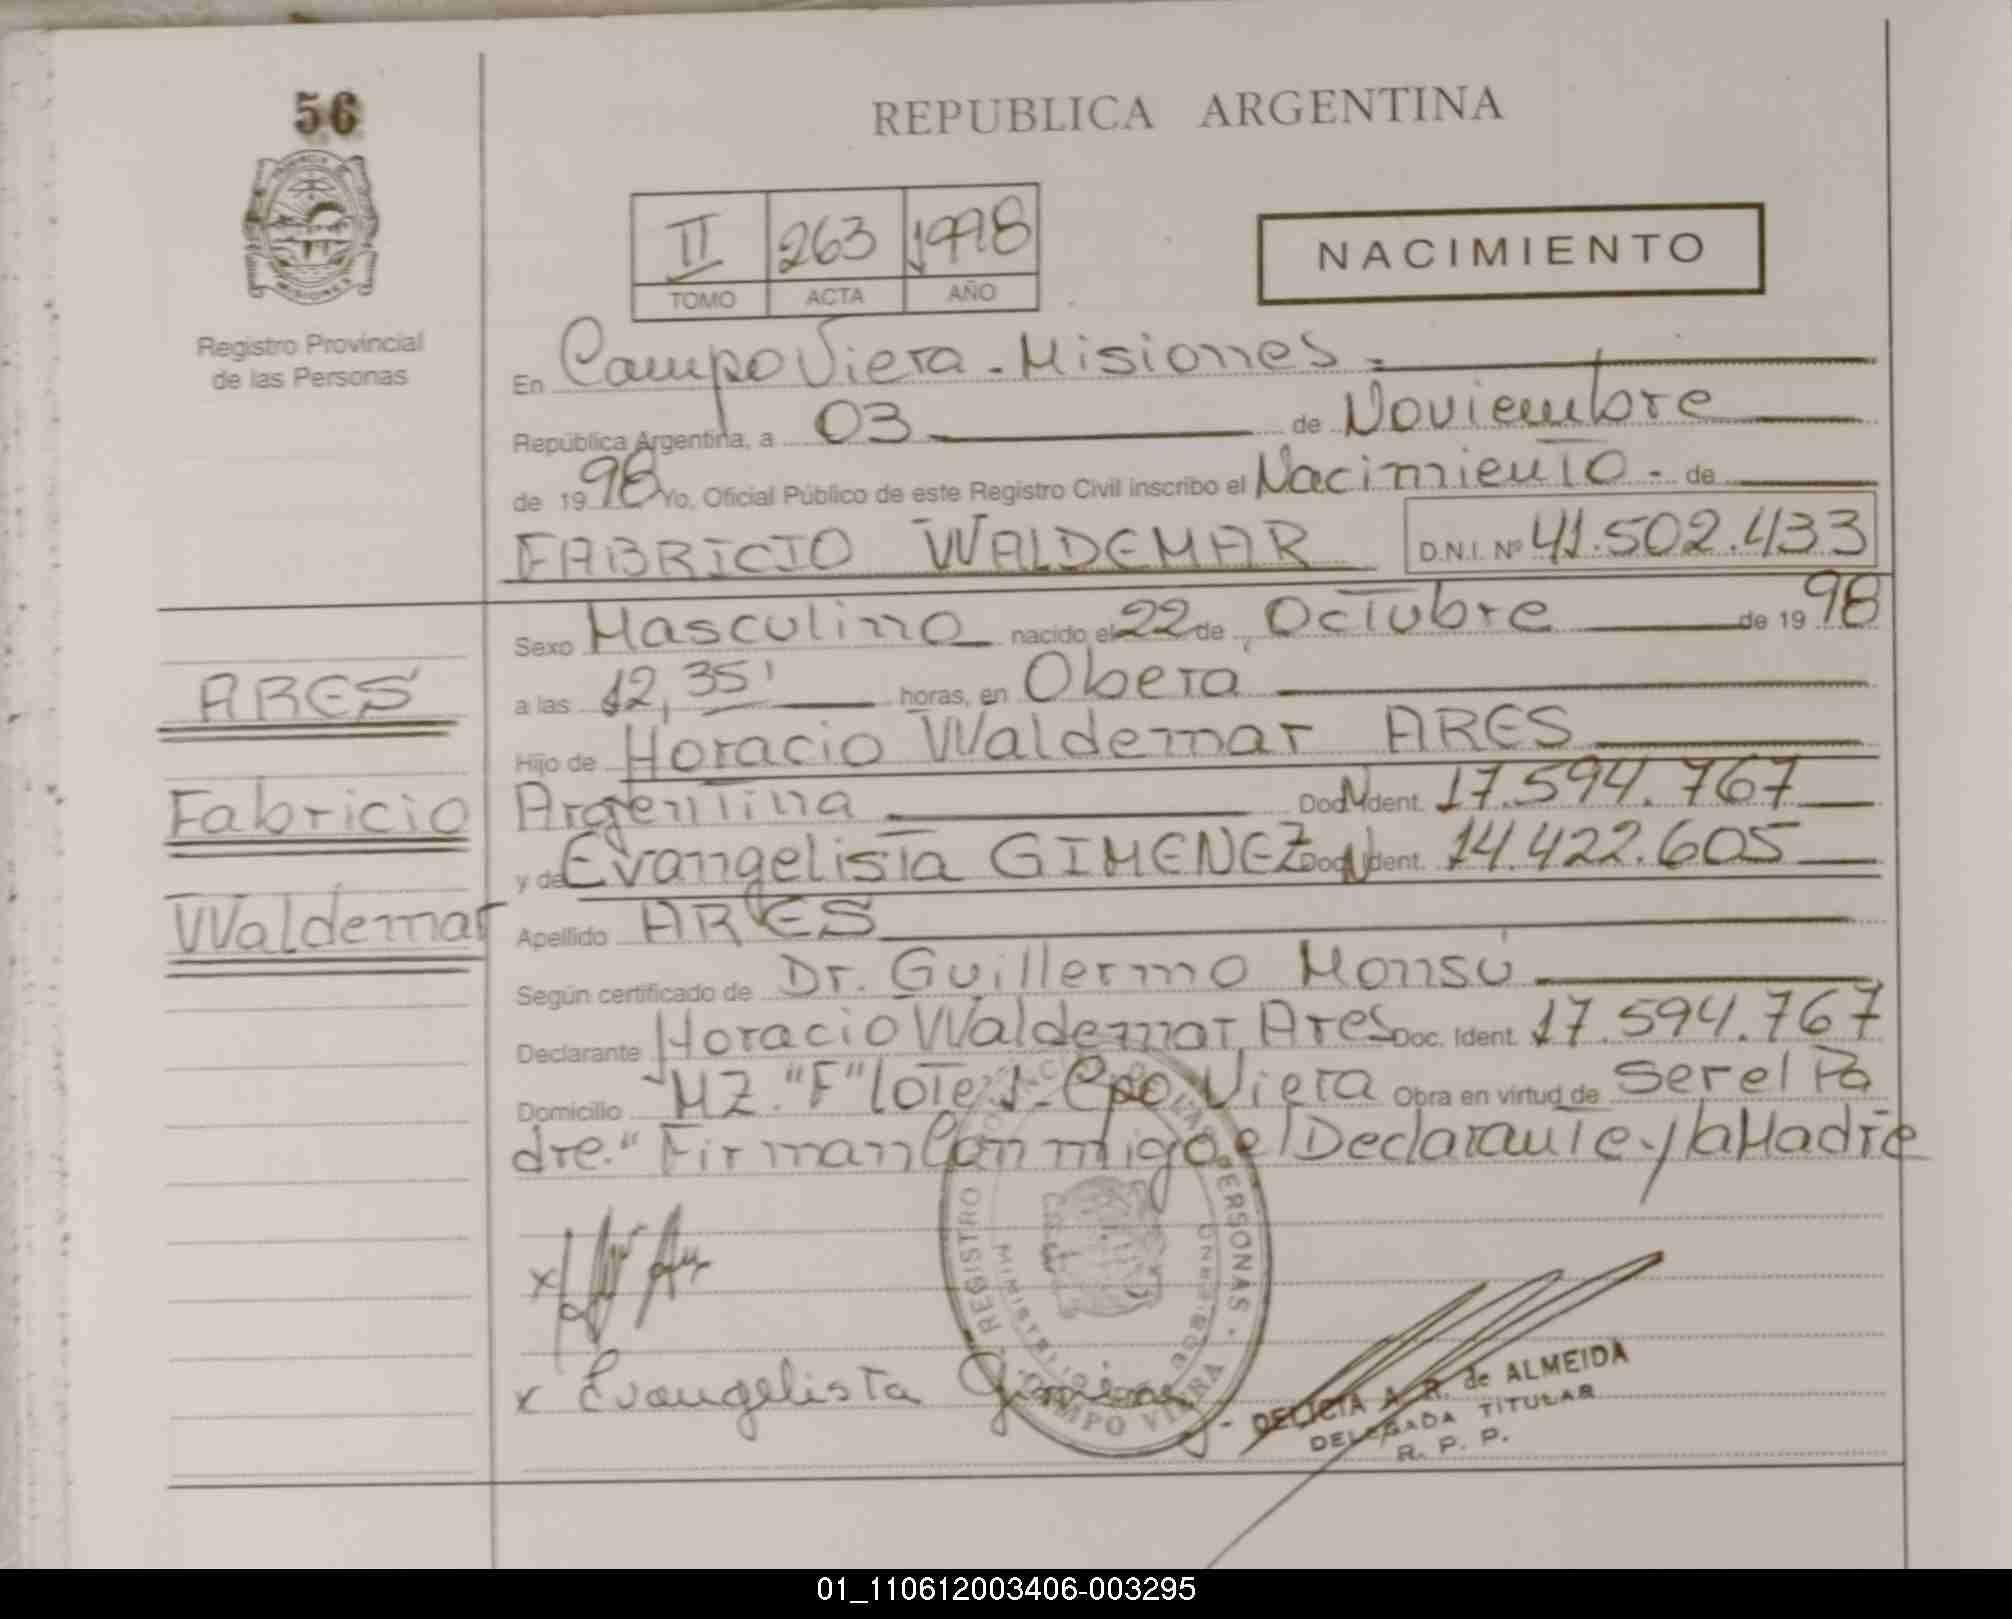 56
REPUBLICA ARGENTINA
II 263 1998
TOMO ACTA AÑO
NACIMIENTO
Registro Provincial
de las Personas
En Campo Viera - Misiones.=
República Argentina, a 03 de Noviembre
de 1998 Yo, Oficial Público de este Registro Civil inscribo el Nacimiento.- de
FABRICIO WALDEMAR D.N.I. Nº 41.502.433
Sexo Masculino nacido el 22 de Octubre de 1998
a las 12,35' horas, en Obera
ARES
Hijo de Horacio Waldemar ARES
Fabricio
Argentina Doc. N Ident. 17.594.767
y de Evangelista GIMENEZ Doc. N Ident. 14.422.605
Waldemar
Apellido ARES
Según certificado de Dr. Guillermo Monsú
Declarante Horacio Waldemar Ares Doc. Ident. 17.594.767
Domicilio MZ. "F" lote 1- Cpo Viera Obra en virtud de ser el Pa
dre." Firman Conmigo el Declarante y la Madre
x
x Evangelista Gimenez
REGISTRO PERSONAS
CAMPO VIERA
DELICIA A. R. de ALMEIDA
DELEGADA TITULAR
R. P. P.
01_110612003406-003295